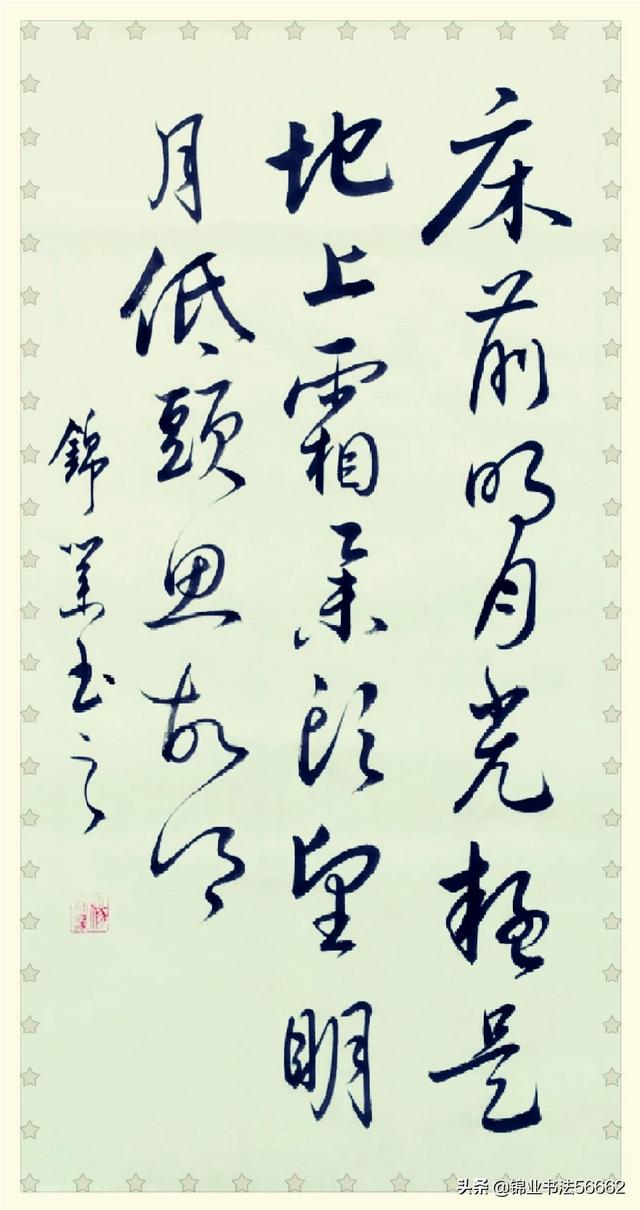 床前明月光疑是
地上霜举头望明
月低頭思故乡
錦業书之
头条 @锦业书法56662